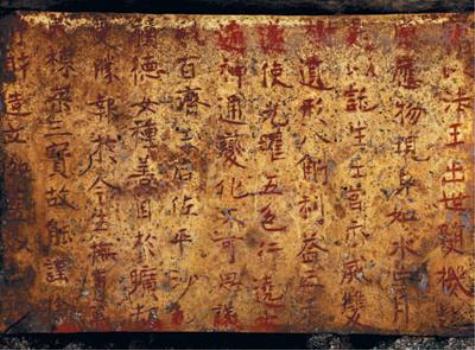 以法王出世隨機赴
應物現身如水中月
以託生王宮示滅雙
遺形八斛利益三千
遂使光曜五色行遶七
遍神通變化不可思議
百濟王后佐平沙乇
積德女種善因於曠劫
受勝報於今生撫育萬
棟梁三寶故能謹捨
財造立伽藍以